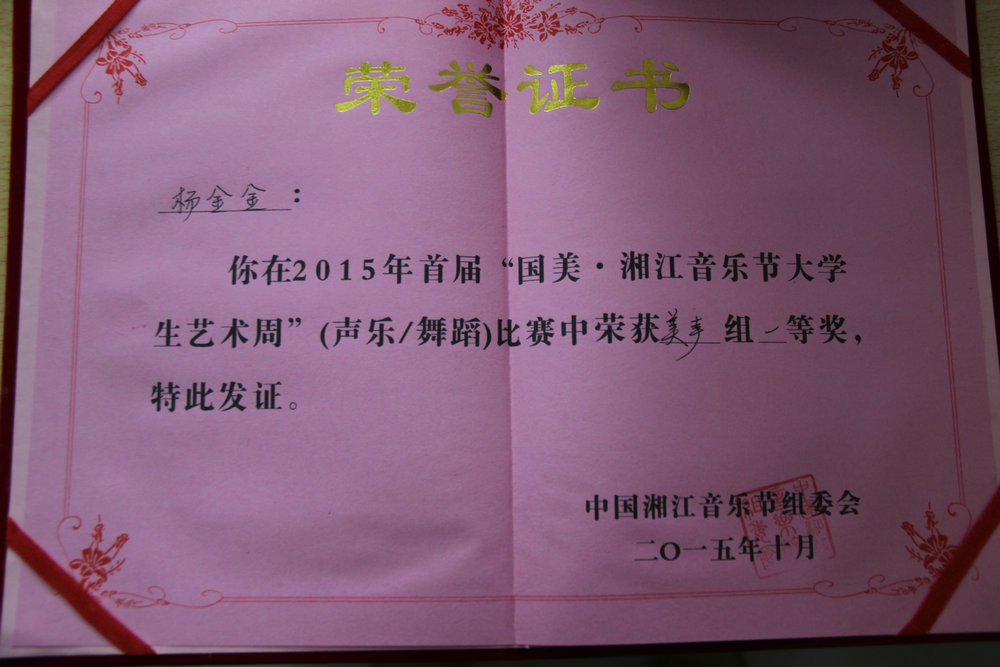 荣誉证书
杨金金：
你在2015年首届“国美·湘江音乐节大学
生艺术周”(声乐/舞蹈)比赛中荣获美声组一等奖，
特此发证。
中国湘江音乐节组委会
二〇一五年十月